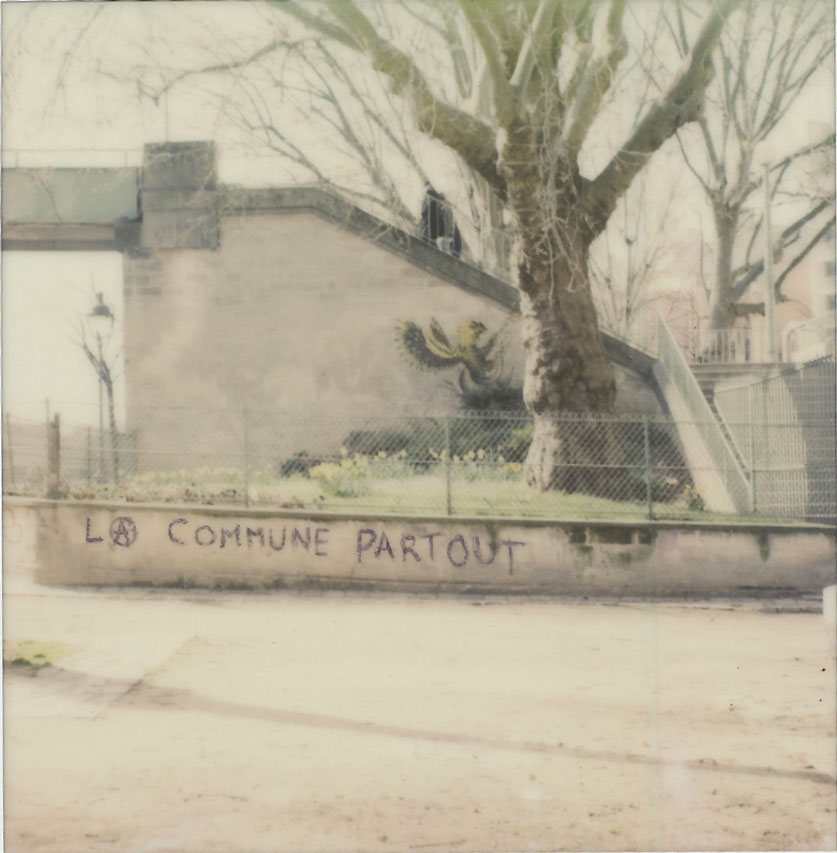 LA COMMUNE PARTOUT